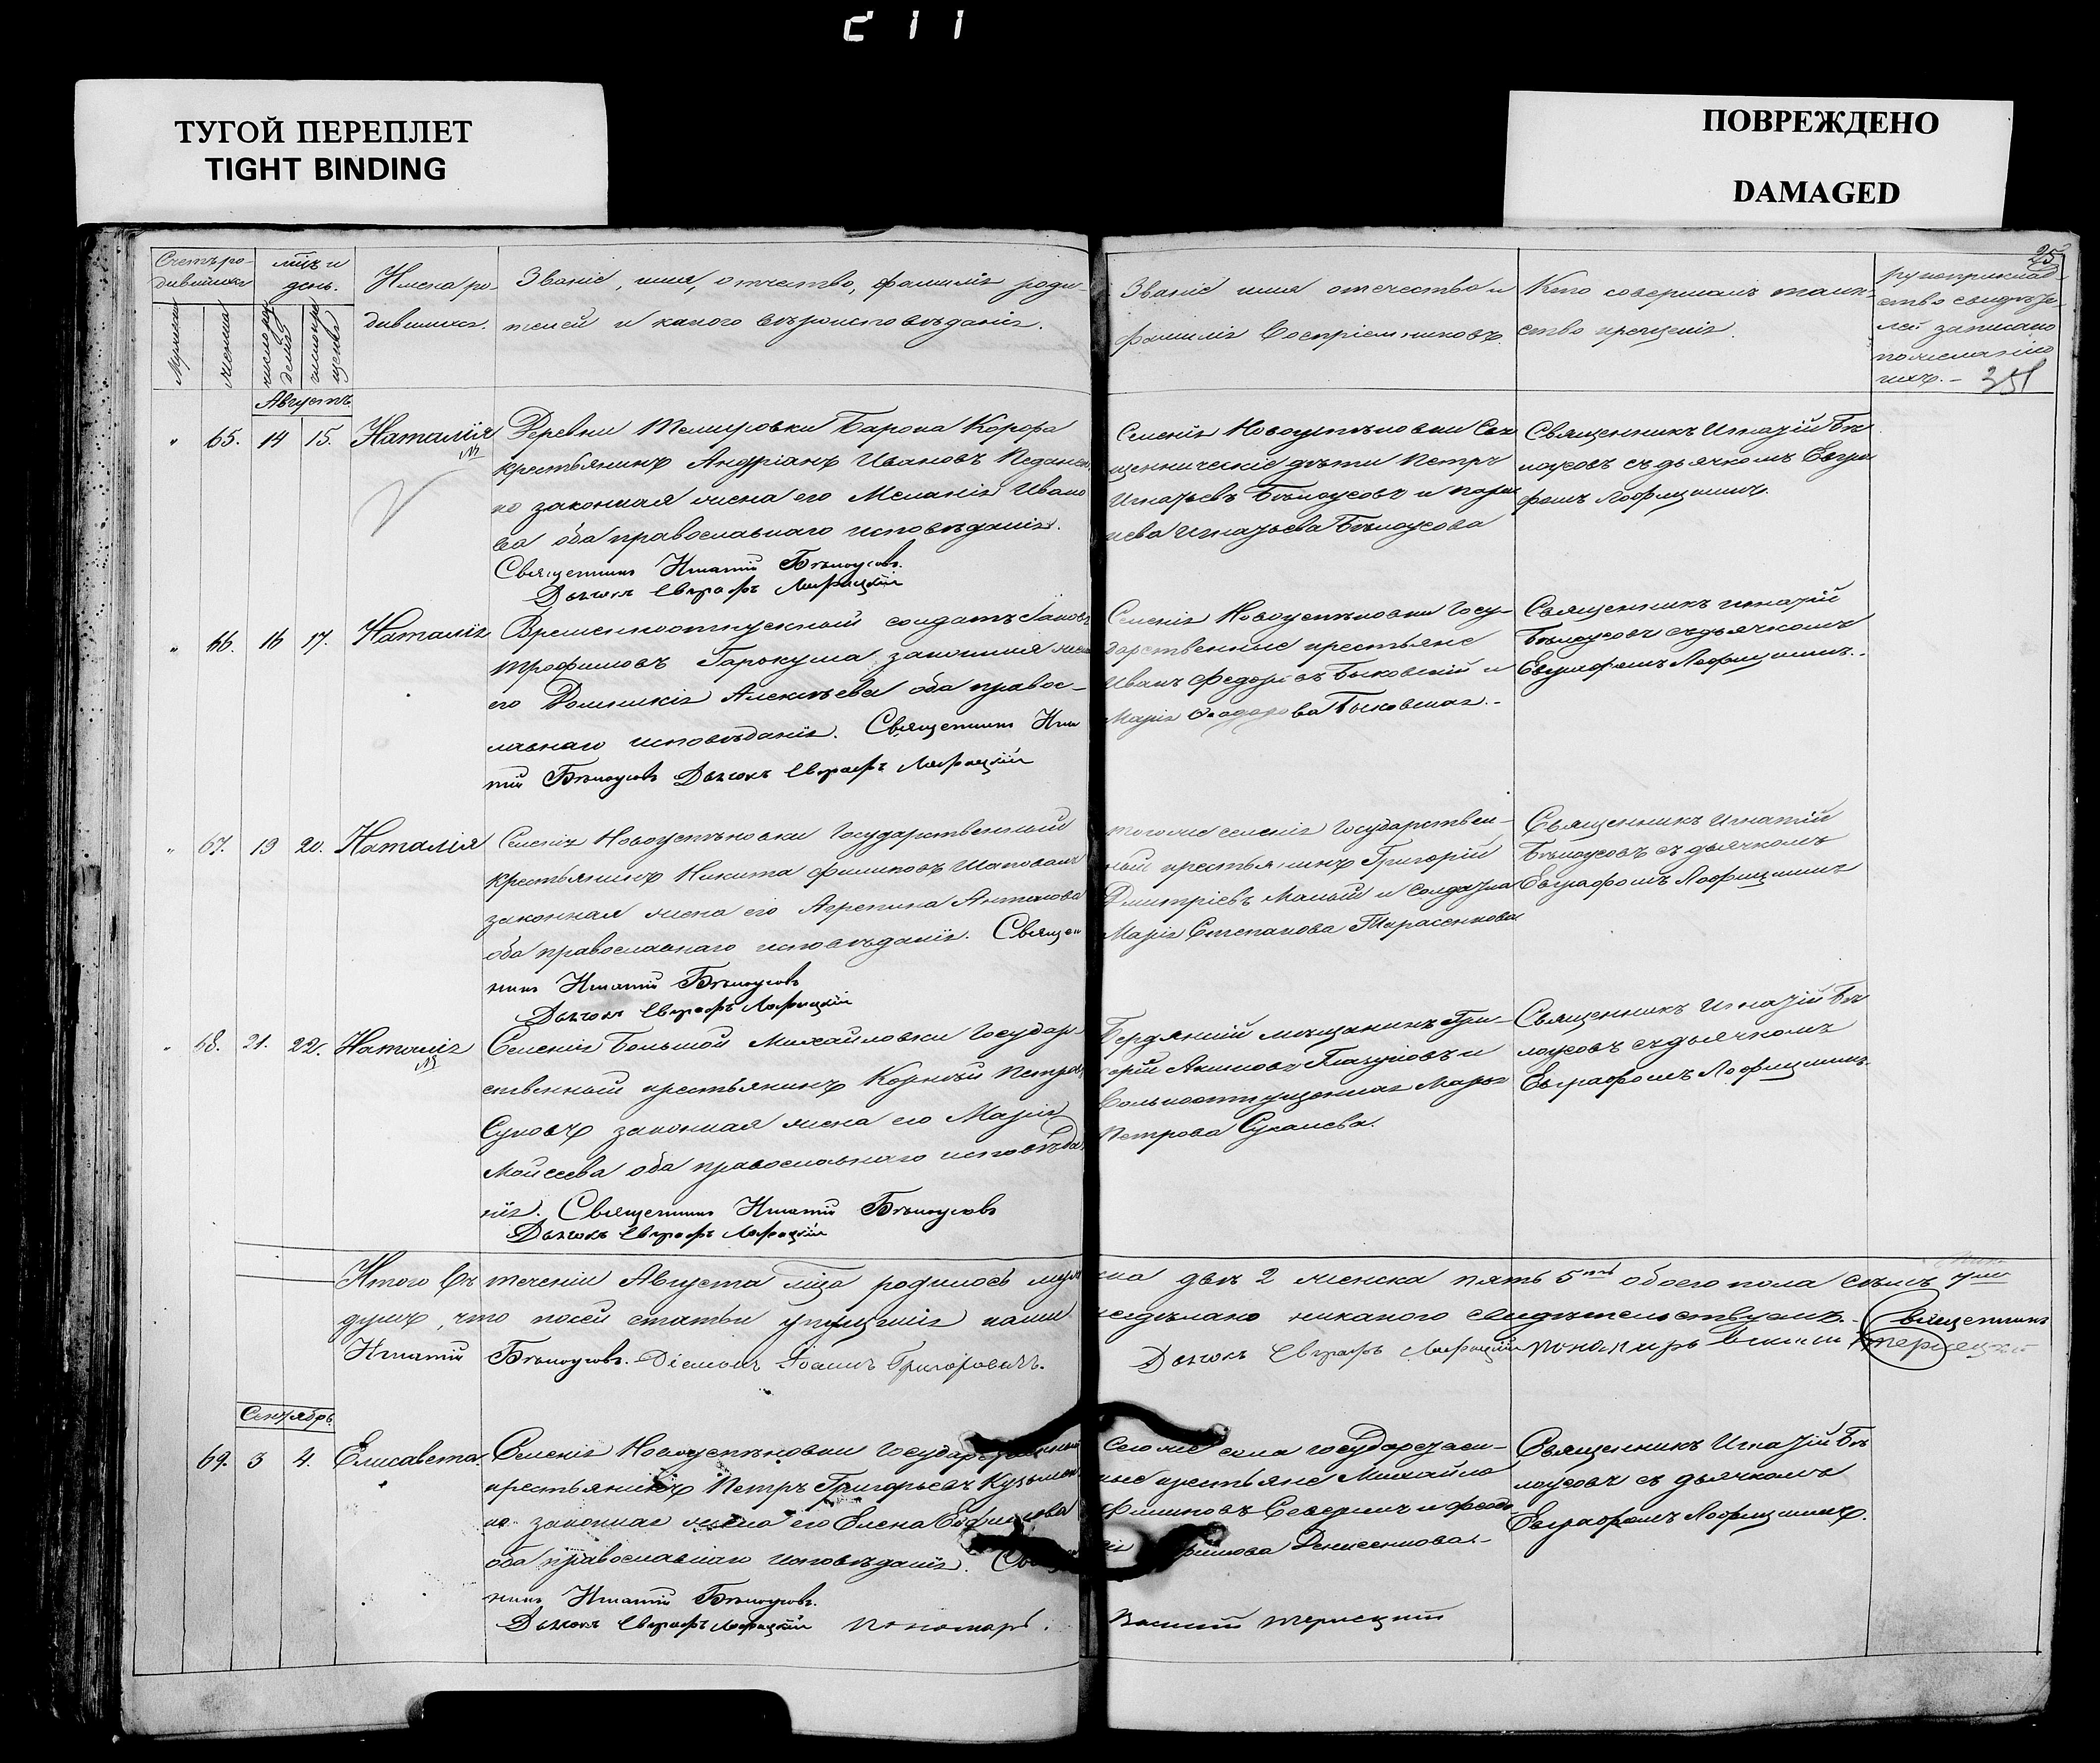 ТУГОЙ ПЕРЕПЛЕТ
TIGHT BINDING
ПОВРЕЖДЕНО
DAMAGED
25
Счетъ ро-
дившихся
мѣц и
день.
Имена ро-
дившихся.
Званіе, имя, отчество, фамилія роди-
телей и какого вѣроисповѣданія.
Званіе имя отечество и
фамилія Воспріемниковъ.
Кто совершалъ таин-
ство крещенія.
рукоприклад-
ство свидѣте-
лей записано
по желанію
ихъ. - 351
Мужеска
женска
Августъ.
65. 14 15. Наталія
Деревни Темировки Барона Корфа
крестьянинъ Андріанъ Ивановъ
законная жена его Меланія Ивано
ва оба православнаго исповѣданія.
Священникъ Игнатій Бѣлоусовъ.
Дьячокъ Евграфъ
Селенія Новоуспѣновки Свя
щенническіе дѣти Петръ
Игнатьевъ Бѣлоусовъ и
Игнатьева Бѣлоусова
Священникъ Игнатій Бѣ
лоусовъ съ дьячкомъ Евгра
фомъ
66. 16 17. Наталія
Временноотпускный солдатъ Іаковъ
Трофимовъ законная жена
его Домникія Алексѣева оба правос-
лавнаго исповѣданія. Священникъ Игна
тій Бѣлоусовъ Дьячокъ Евграфъ
Селенія Новоуспѣновки Госу-
дарственные крестьяне
Иванъ Федоровъ Быковскій и
Марія Феодорова Быковская.-
Священникъ Игнатій
Бѣлоусовъ съ дьячкомъ
Евграфомъ
67. 19 20. Наталія
Селенія Новоуспѣновки Государственный
крестьянинъ Никита Филиповъ Шаповалъ
законная жена его Агрепина Антонова
оба православнаго исповѣданія. Священ
никъ Игнатій Бѣлоусовъ
Дьячокъ Евграфъ
тогоже селенія Государствен-
ный крестьянинъ Григорій
Дмитріевъ Малый и Солдатка
Марія Степанова Тарасенкова
Священникъ Игнатій
Бѣлоусовъ съ дьячкомъ
Евграфомъ
68. 21. 22. Наталія
Селенія Большой Михайловки Государ-
ственный крестьянинъ Корнѣй Петровъ
законная жена его Марія
Моисеева оба православнаго исповѣда
нія. Священникъ Игнатій Бѣлоусовъ
Дьячокъ Евграфъ
Бердянскій мѣщанинъ Гри-
горій Акимовъ и
Вольноотпущенная Марья
Петрова
Священникъ Игнатій Бѣ
лоусовъ съ дьячкомъ
Евграфомъ
Итого въ теченіи Августа мѣца родилось муж
ска двѣ 2 женска пять 5ть обоего пола семь 7мь
душъ, что по сей статьи упущенія нами
несдѣлано никакого свидѣтельствуемъ. Священникъ
Игнатій Бѣлоусовъ. Діаконъ Іоаннъ Григоровичъ.
Дьячокъ Евграфъ пономарь Василій
Сентябрь
69. 3 4. Елисавета
Селенія Новоуспѣновки Государственный
крестьянинъ Петръ Григорьевъ Кузьмен
ко законная жена его Елена Ефимова
оба православнаго исповѣданія. Священ
никъ Игнатій Бѣлоусовъ.
Дьячокъ Евграфъ Пономарь.
Сегоже села государствен-
ные крестьяне Михайло
Филиповъ Северинъ и Феодо
Денисенкова-
Василій
Священникъ Игнатій Бѣ
лоусовъ съ дьячкомъ
Евграфомъ